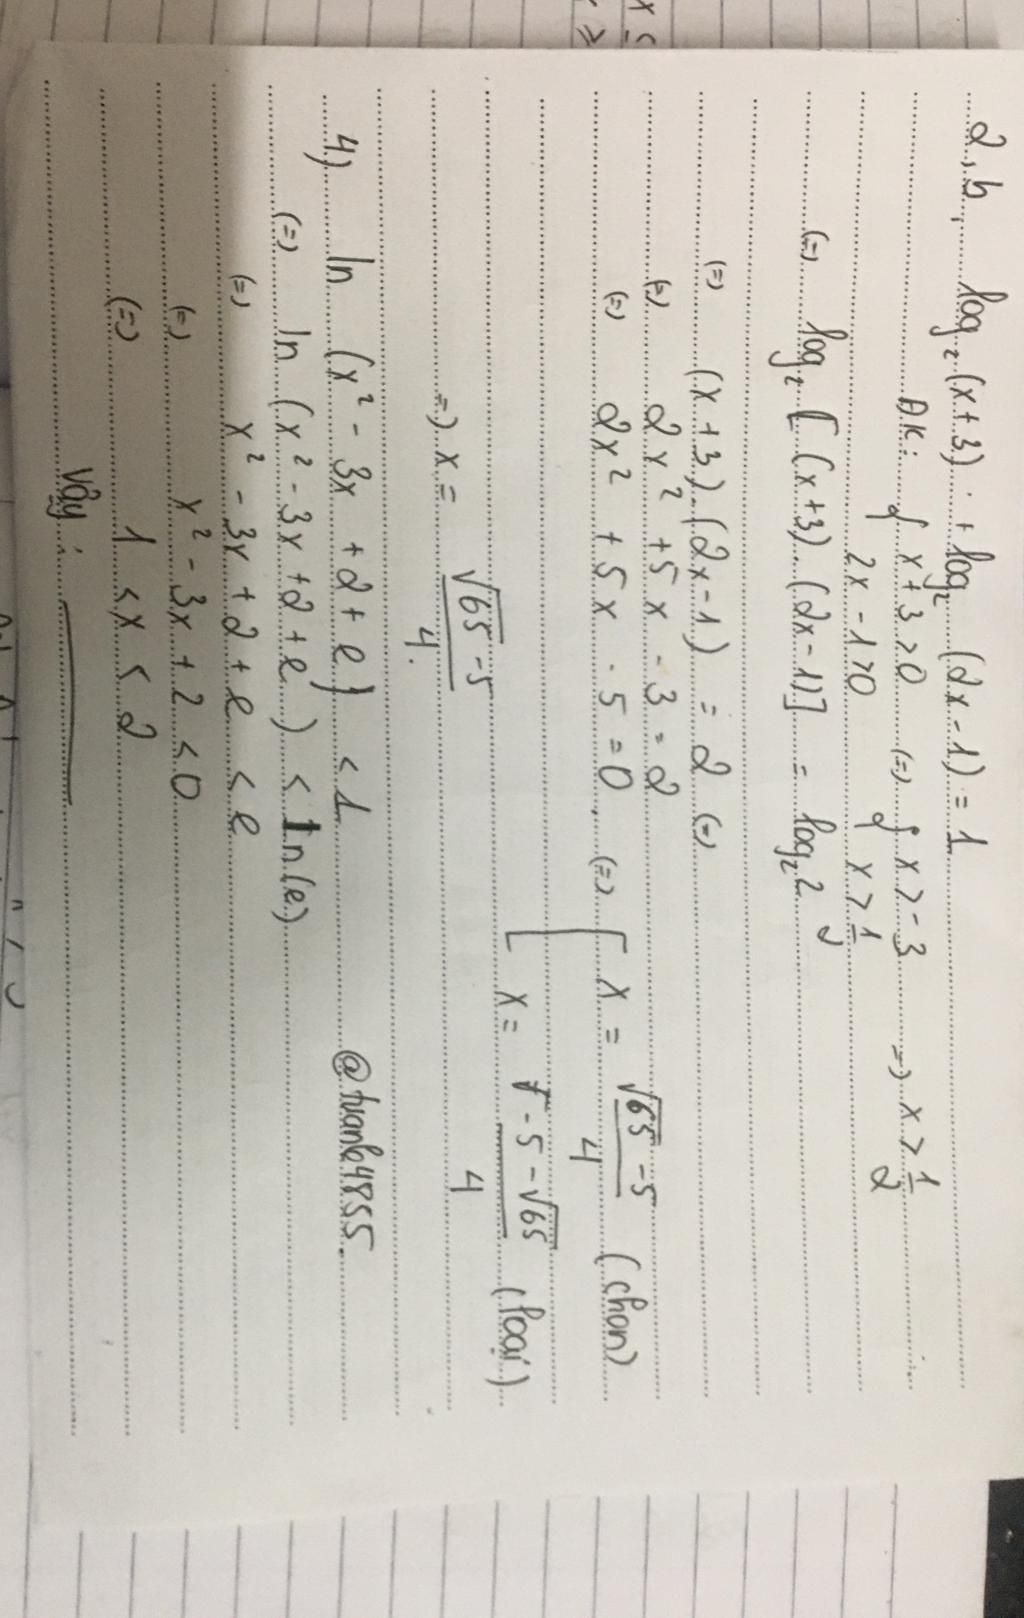 2, b, log₂ (x+3) + log₂ (2x-1) = 1
ĐK: { x+3>0 (=) { x>-3 => x > 1/2
2x-1>0 x > 1/2
(=) log₂ [(x+3).(2x-1)] = log₂ 2
(=) (x+3).(2x-1) = 2 (=)
(=) 2x² +5x -3 = 2
(=) 2x² +5x -5 = 0 (=) [ x = (√65 -5)/4 (chọn)
x = (-5-√65)/4 (loại)
=> x = (√65 -5)/4.
4) ln (x² - 3x + 2 + e) < 1 @tuanle4855.
(=) ln (x² - 3x + 2 + e) < ln(e)
(=) x² - 3x + 2 + e < e
(=) x² - 3x + 2 < 0
(=) 1 < x < 2
Vậy: